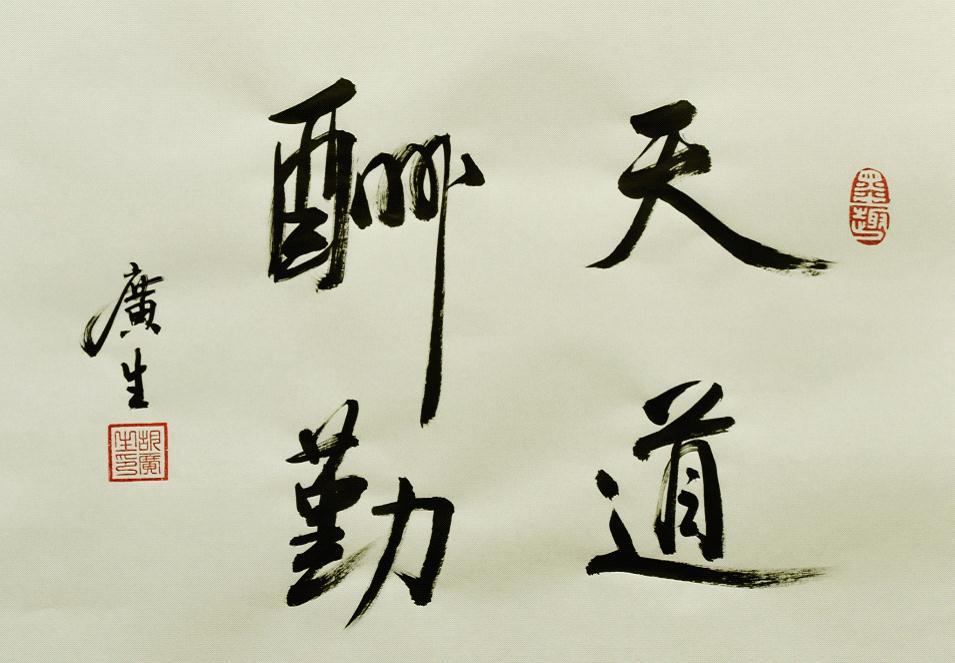 天道
酬勤
廣生
墨趣
胡廣生印